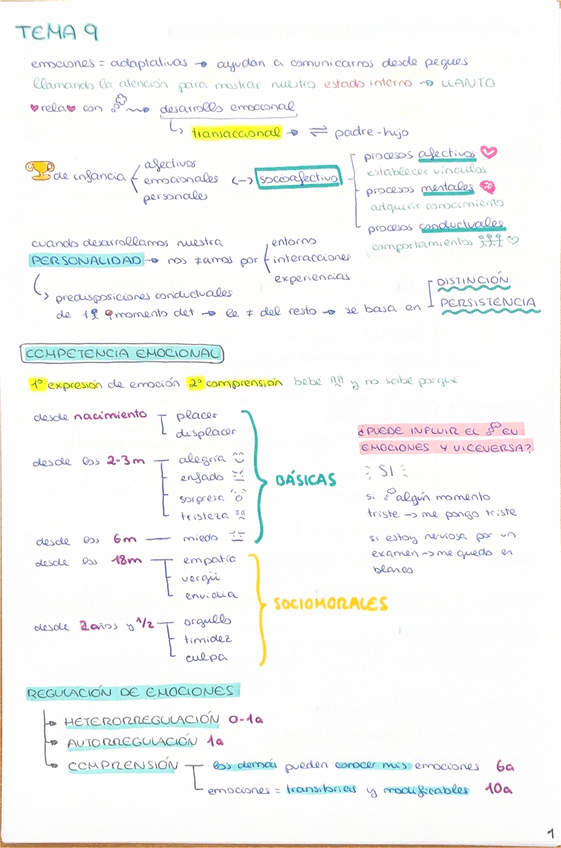 TEMA 9
emociones = adaptativas → ayudan a comunicarnos desde peques
llamando la atención para mostrar nuestro estado interno → LLANTO
rela con desarrollo emocional
transaccional → ⇌ padre-hijo
de infancia afectivos emocionales personales <-> socioafectivo
procesos afectivos
establecer vínculos
procesos mentales
adquirir conocimiento
procesos conductuales
comportamientos
cuando desarrollamos nuestra
PERSONALIDAD → nos ≠amos por entorno interacciones experiencias
predisposiciones conductuales
de 1 momento det → le ≠ del resto → se basa en DISTINCIÓN PERSISTENCIA
COMPETENCIA EMOCIONAL
1º expresión de emoción 2º comprensión bebé y no sabe porqué
desde nacimiento placer
displacer
desde los 2-3m alegría
enfado
sorpresa
tristeza
desde los 6m — miedo
BÁSICAS
desde los 18m empatía
vergü
envidia
desde 2 años y 1/2 orgullo
timidez
culpa
SOCIOMORALES
¿PUEDE INFLUIR EL EN
EMOCIONES Y VICEVERSA?
SI
si algún momento
triste → me pongo triste
si estoy nerviosa por un
examen → me quedo en
blanco
REGULACIÓN DE EMOCIONES
HETERORREGULACIÓN 0-1a
AUTORREGULACIÓN 1a
COMPRENSIÓN los demás pueden conocer mis emociones 6a
emociones = transitorias y modificables 10a
1